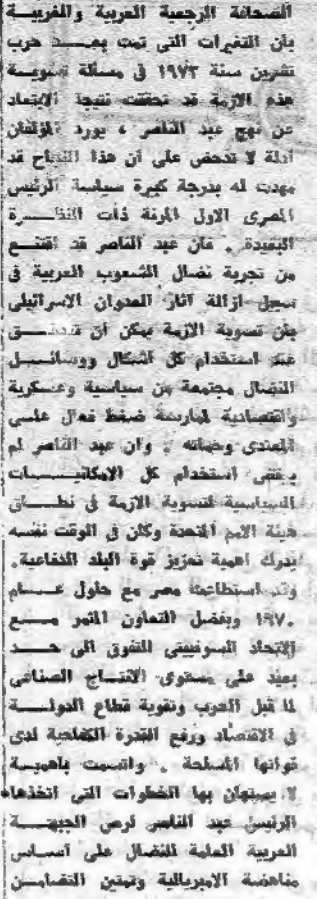 الصحافة الرجعية العربية والغربية
بأن التغيرات التى تمت بعد حرب
تشرين سنة ١٩٧٣ فى مسألة تسوية
هذه الازمة قد تحققت نتيجة الابتعاد
عن نهج عبد الناصر ، يورد المؤلفان
ادلة لا تدحض على أن هذا النجاح قد
مهدت له بدرجة كبيرة سياسة الرئيس
المصرى الاول المرنة ذات النظرة
البعيدة . فان عبد الناصر قد اقتنع
من تجربة نضال الشعوب العربية فى
سبيل ازالة آثار العدوان الاسرائيلى
بأن تسوية الازمة يمكن أن تتحقق
عند استخدام كل أشكال ووسائل
النضال مجتمعة من سياسية وعسكرية
واقتصادية لممارسة ضغط فعال على
المعتدى وحماته . وان عبد الناصر لم
يرفض استخدام كل الامكانيات
السياسية لتسوية الازمة فى نطاق
هيئة الامم المتحدة وكان فى الوقت نفسه
يدرك أهمية تعزيز قوة البلد الدفاعية.
وقد استطاعت مصر مع حلول عام
١٩٧٠ وبفضل التعاون المثمر مع
الاتحاد السوفييتى التفوق الى حد
بعيد على مستوى الانتاج الصناعى
لما قبل الحرب وتقوية قطاع الدولة
فى الاقتصاد ورفع القدرة الكفاحية لدى
قواتها المسلحة . واتسمت بأهمية
لا يستهان بها الخطوات التى اتخذها
الرئيس عبد الناصر لرص الجبهة
العربية العامة للنضال على أساس
مناهضة الامبريالية وتمتين التضامن